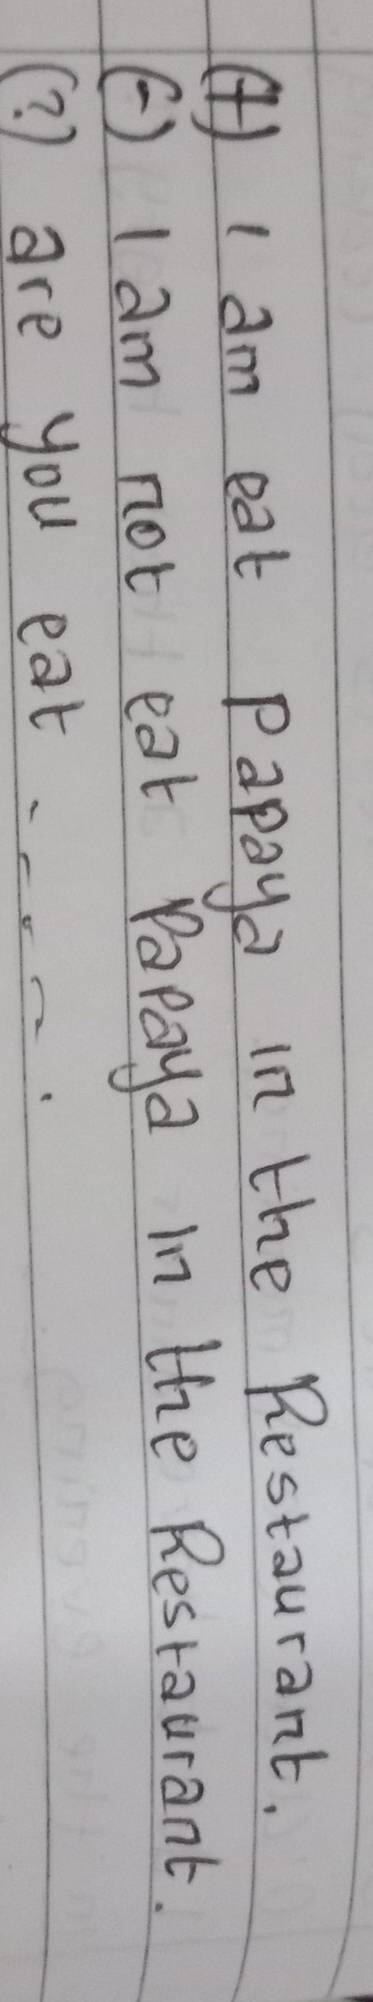 (+) I am eat papaya in the Restaurant.
(-) I am not eat Papaya in the Restaurant.
(?) are you eat - - - - .